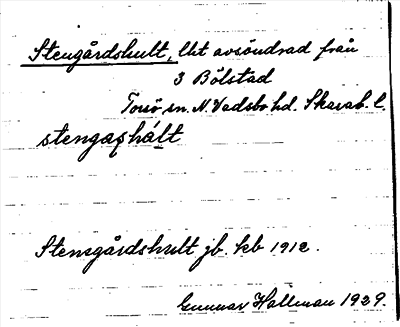 Stengårdshult, lht avsöndrad från
3 Bölstad
Torsö sn. N. Vadsbo hd. Skarab. l.
Stengårdshult jb. kb 1912.
Gunnar Hallman 1929.